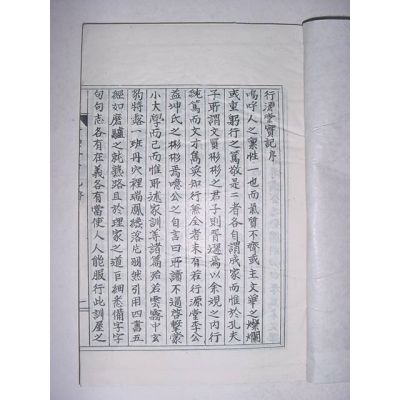 行源堂實記序
嗚呼人之稟性一也而氣質不齊或主文華之燦爛
或重躬行之篤敬是二者各自謂成家而惟於孔夫
子所謂文質彬彬之君子則皆遜焉以余觀之內行
純篤而文才雋英知行兼全者未有若行源堂李公
益坤氏之彬彬焉噫公之自言曰所讀不過啓蒙篇
小大學而已而惟所述家訓等諸篇殆若雲霧中玄
豹將露一班丹穴裡瑞鳳繞落片明然引用四書五
經如磨驢之就熟路且於理家之道巨細悉備字字
句句志各有在義各有當使人人能服行此訓屋之